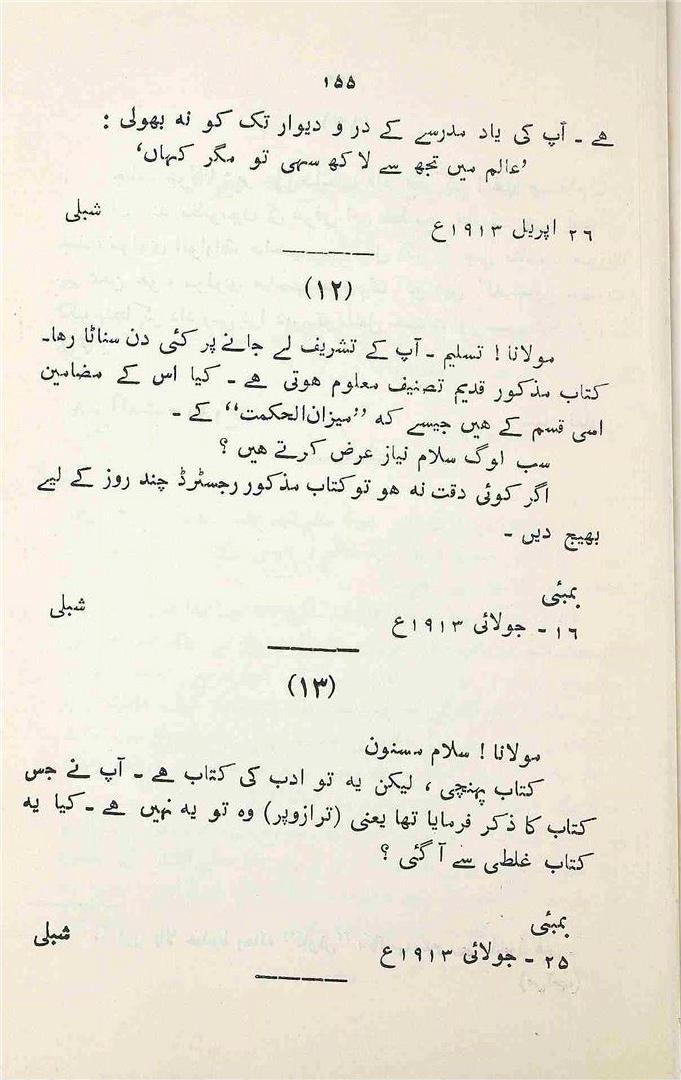 ۱۵۵
ہے ۔ آپ کی یاد مدرسے کے در و دیوار تک کو نہ بھولی :
’عالم میں تجھ سے لاکھ سہی تو مگر کہاں‘
شبلی
۲۶ اپریل ۱۹۱۳ع
(۱۲)
مولانا ! تسلیم ۔ آپ کے تشریف لے جانے پر کئی دن سناٹا رہا۔
کتاب مذکور قدیم تصنیف معلوم ہوتی ہے ۔ کیا اس کے مضامین
اسی قسم کے ہیں جیسے کہ ”میزان الحکمت“ کے ۔
سب لوگ سلام نیاز عرض کرتے ہیں ؟
اگر کوئی دقت نہ ہو تو کتاب مذکور رجسٹرڈ چند روز کے لیے
بھیج دیں ۔
بمبئی
شبلی
۱۶ ۔ جولائی ۱۹۱۳ع
(۱۳)
مولانا ! سلام مسنون
کتاب پہنچی ، لیکن یہ تو ادب کی کتاب ہے ۔ آپ نے جس
کتاب کا ذکر فرمایا تھا یعنی (ترازوپر) وہ تو یہ نہیں ہے ۔ کیا یہ
کتاب غلطی سے آ گئی ؟
بمبئی
شبلی
۲۵ ۔ جولائی ۱۹۱۳ع